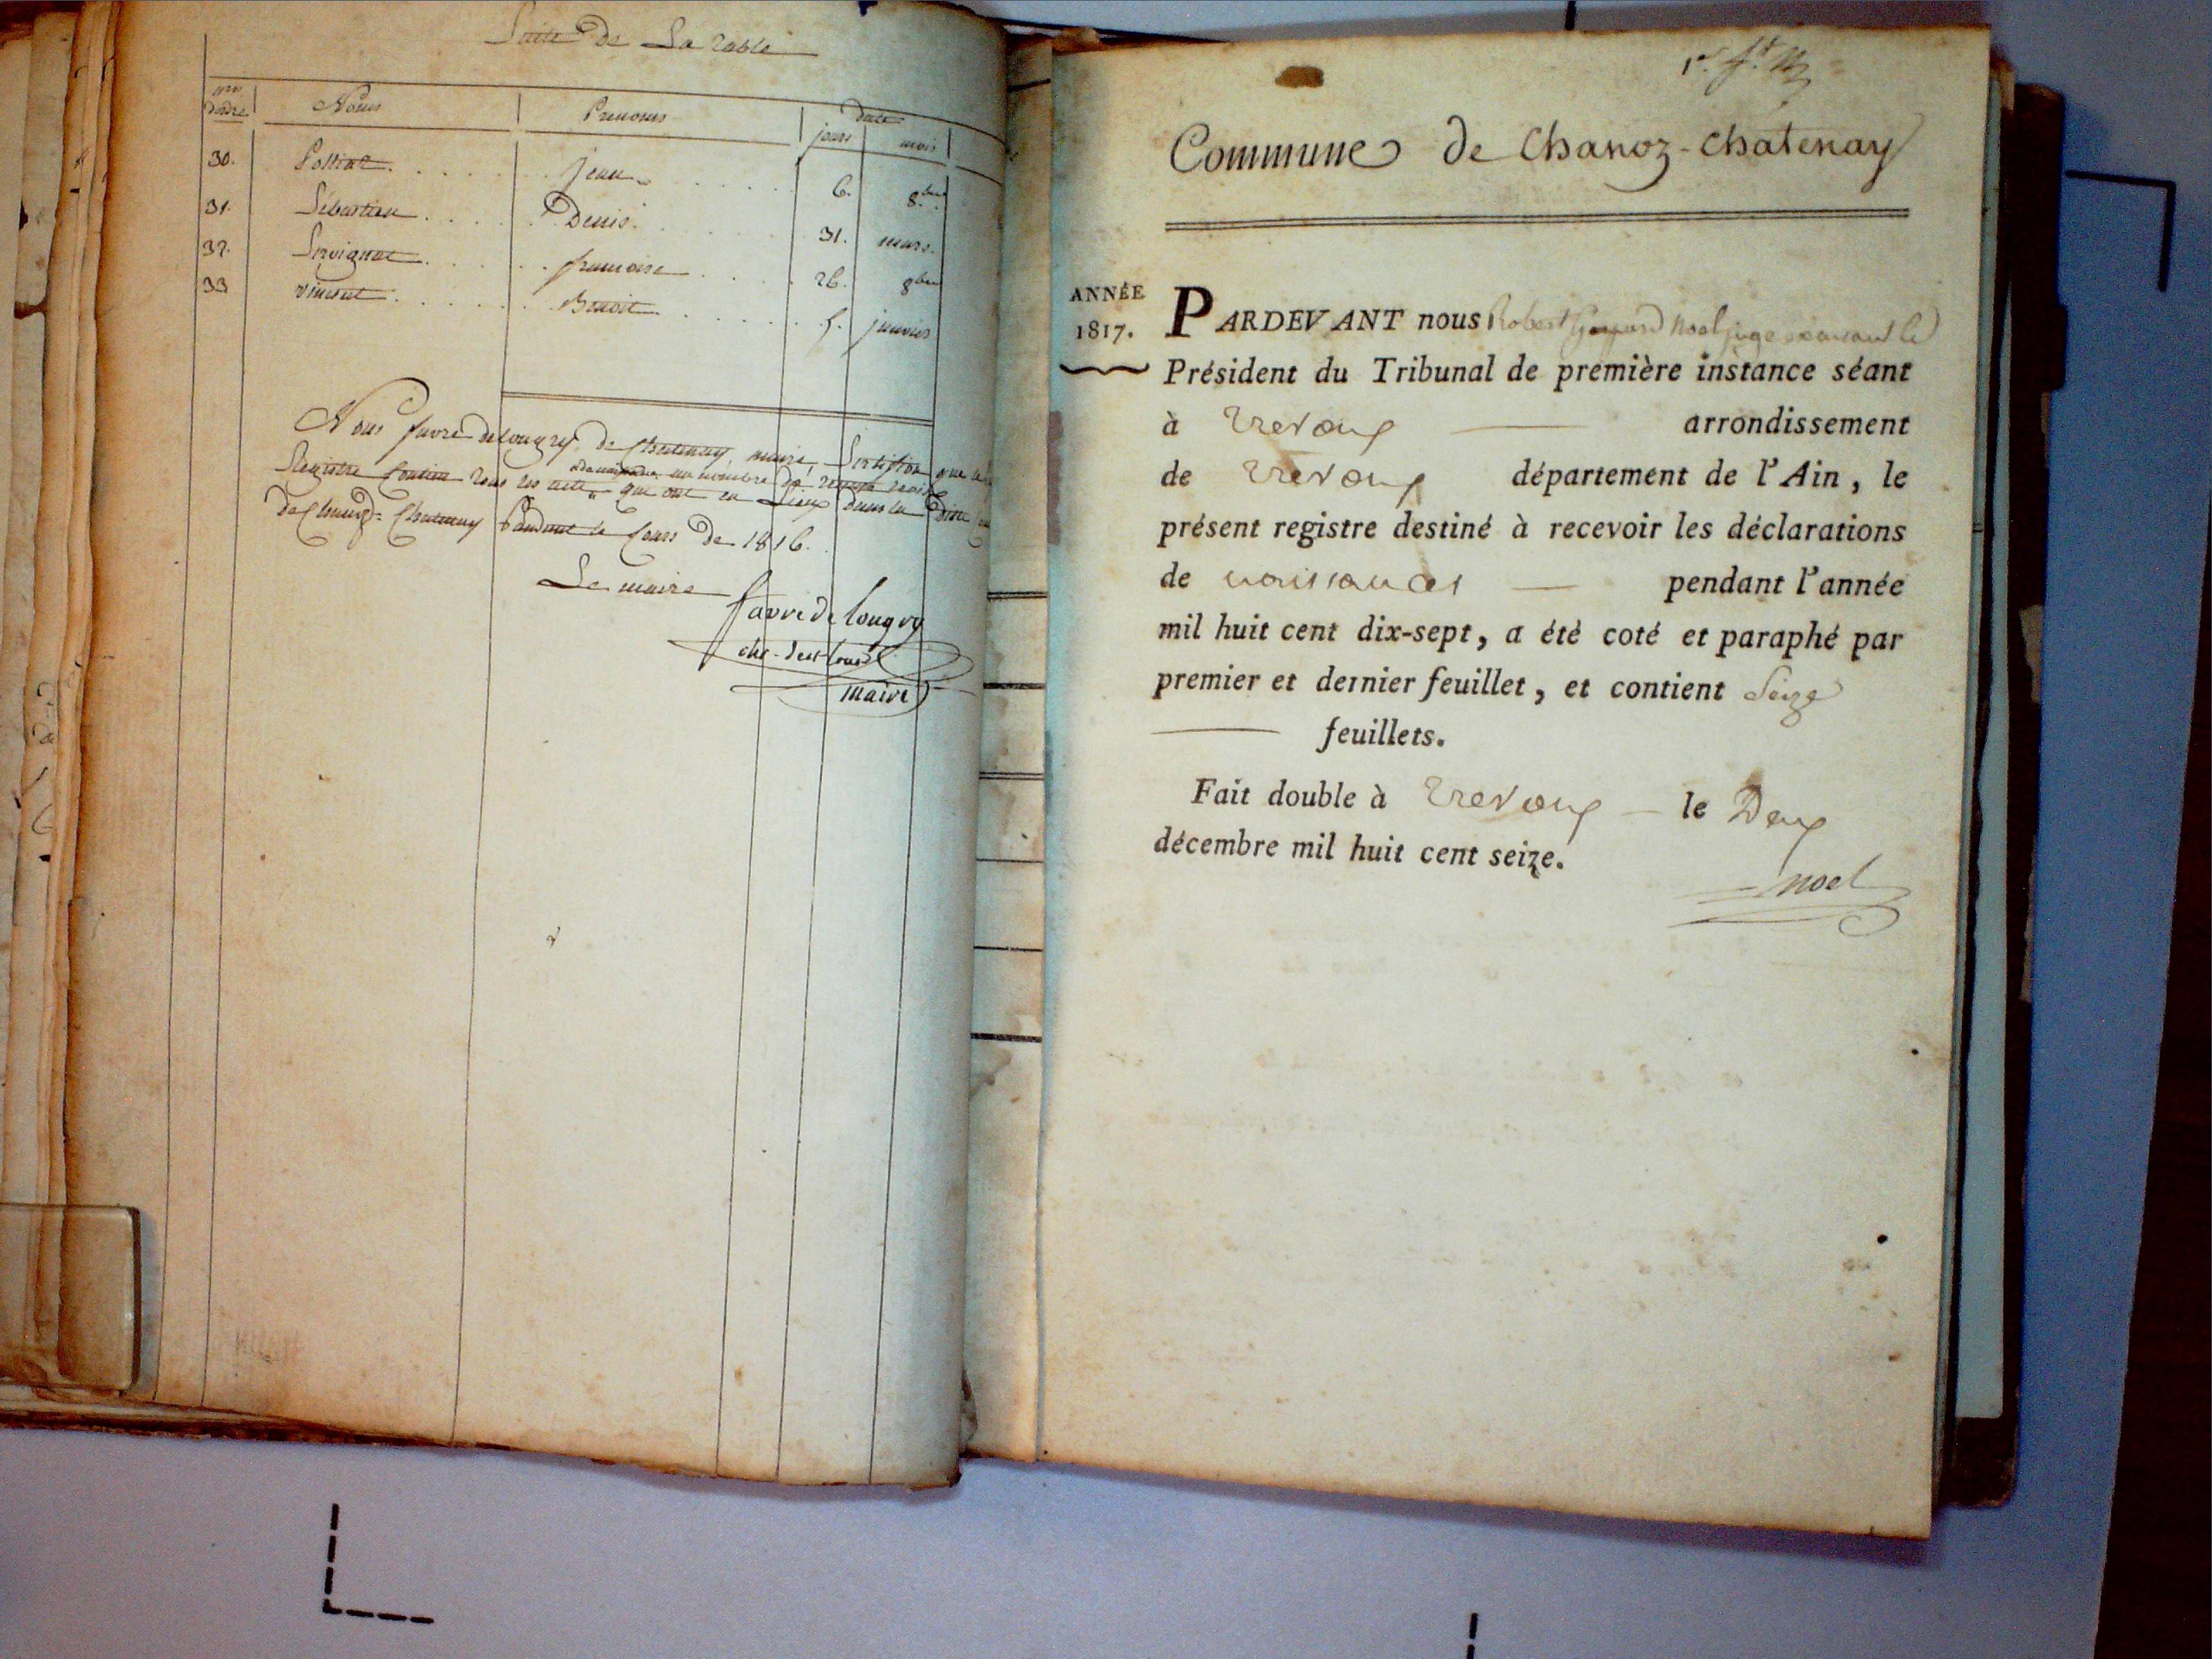 Suite de La table
nro d'ordre Noms Prenoms Date
jours mois
30. Jean 6. 8.bre
31. Sébastien Denis. 31. mars.
32. Servignat francoise 26. 8bre
33 vincent Benoit janvier
Nous favre delongry de Chatenay, maire, Certifion que
Registre Contien tous les actes de naissance au nombre de trente trois
que ont eu Lieux dans la Ditte
de Chanoz-Chatenay Pandant le Cours de 1816.
Le maire
favre de longry
maire
1er. f.t
Commune de Chanoz-Chatenay
ANNÉE
1817.
PARDEVANT nous Robert noel juge exercant le
Président du Tribunal de première instance séant
à Trevoux arrondissement
de Trevoux département de l'Ain, le
présent registre destiné à recevoir les déclarations
de naissances pendant l'année
mil huit cent dix-sept, a été coté et paraphé par
premier et dernier feuillet, et contient Seize
feuillets.
Fait double à Trevoux le Deux
décembre mil huit cent seize.
noel